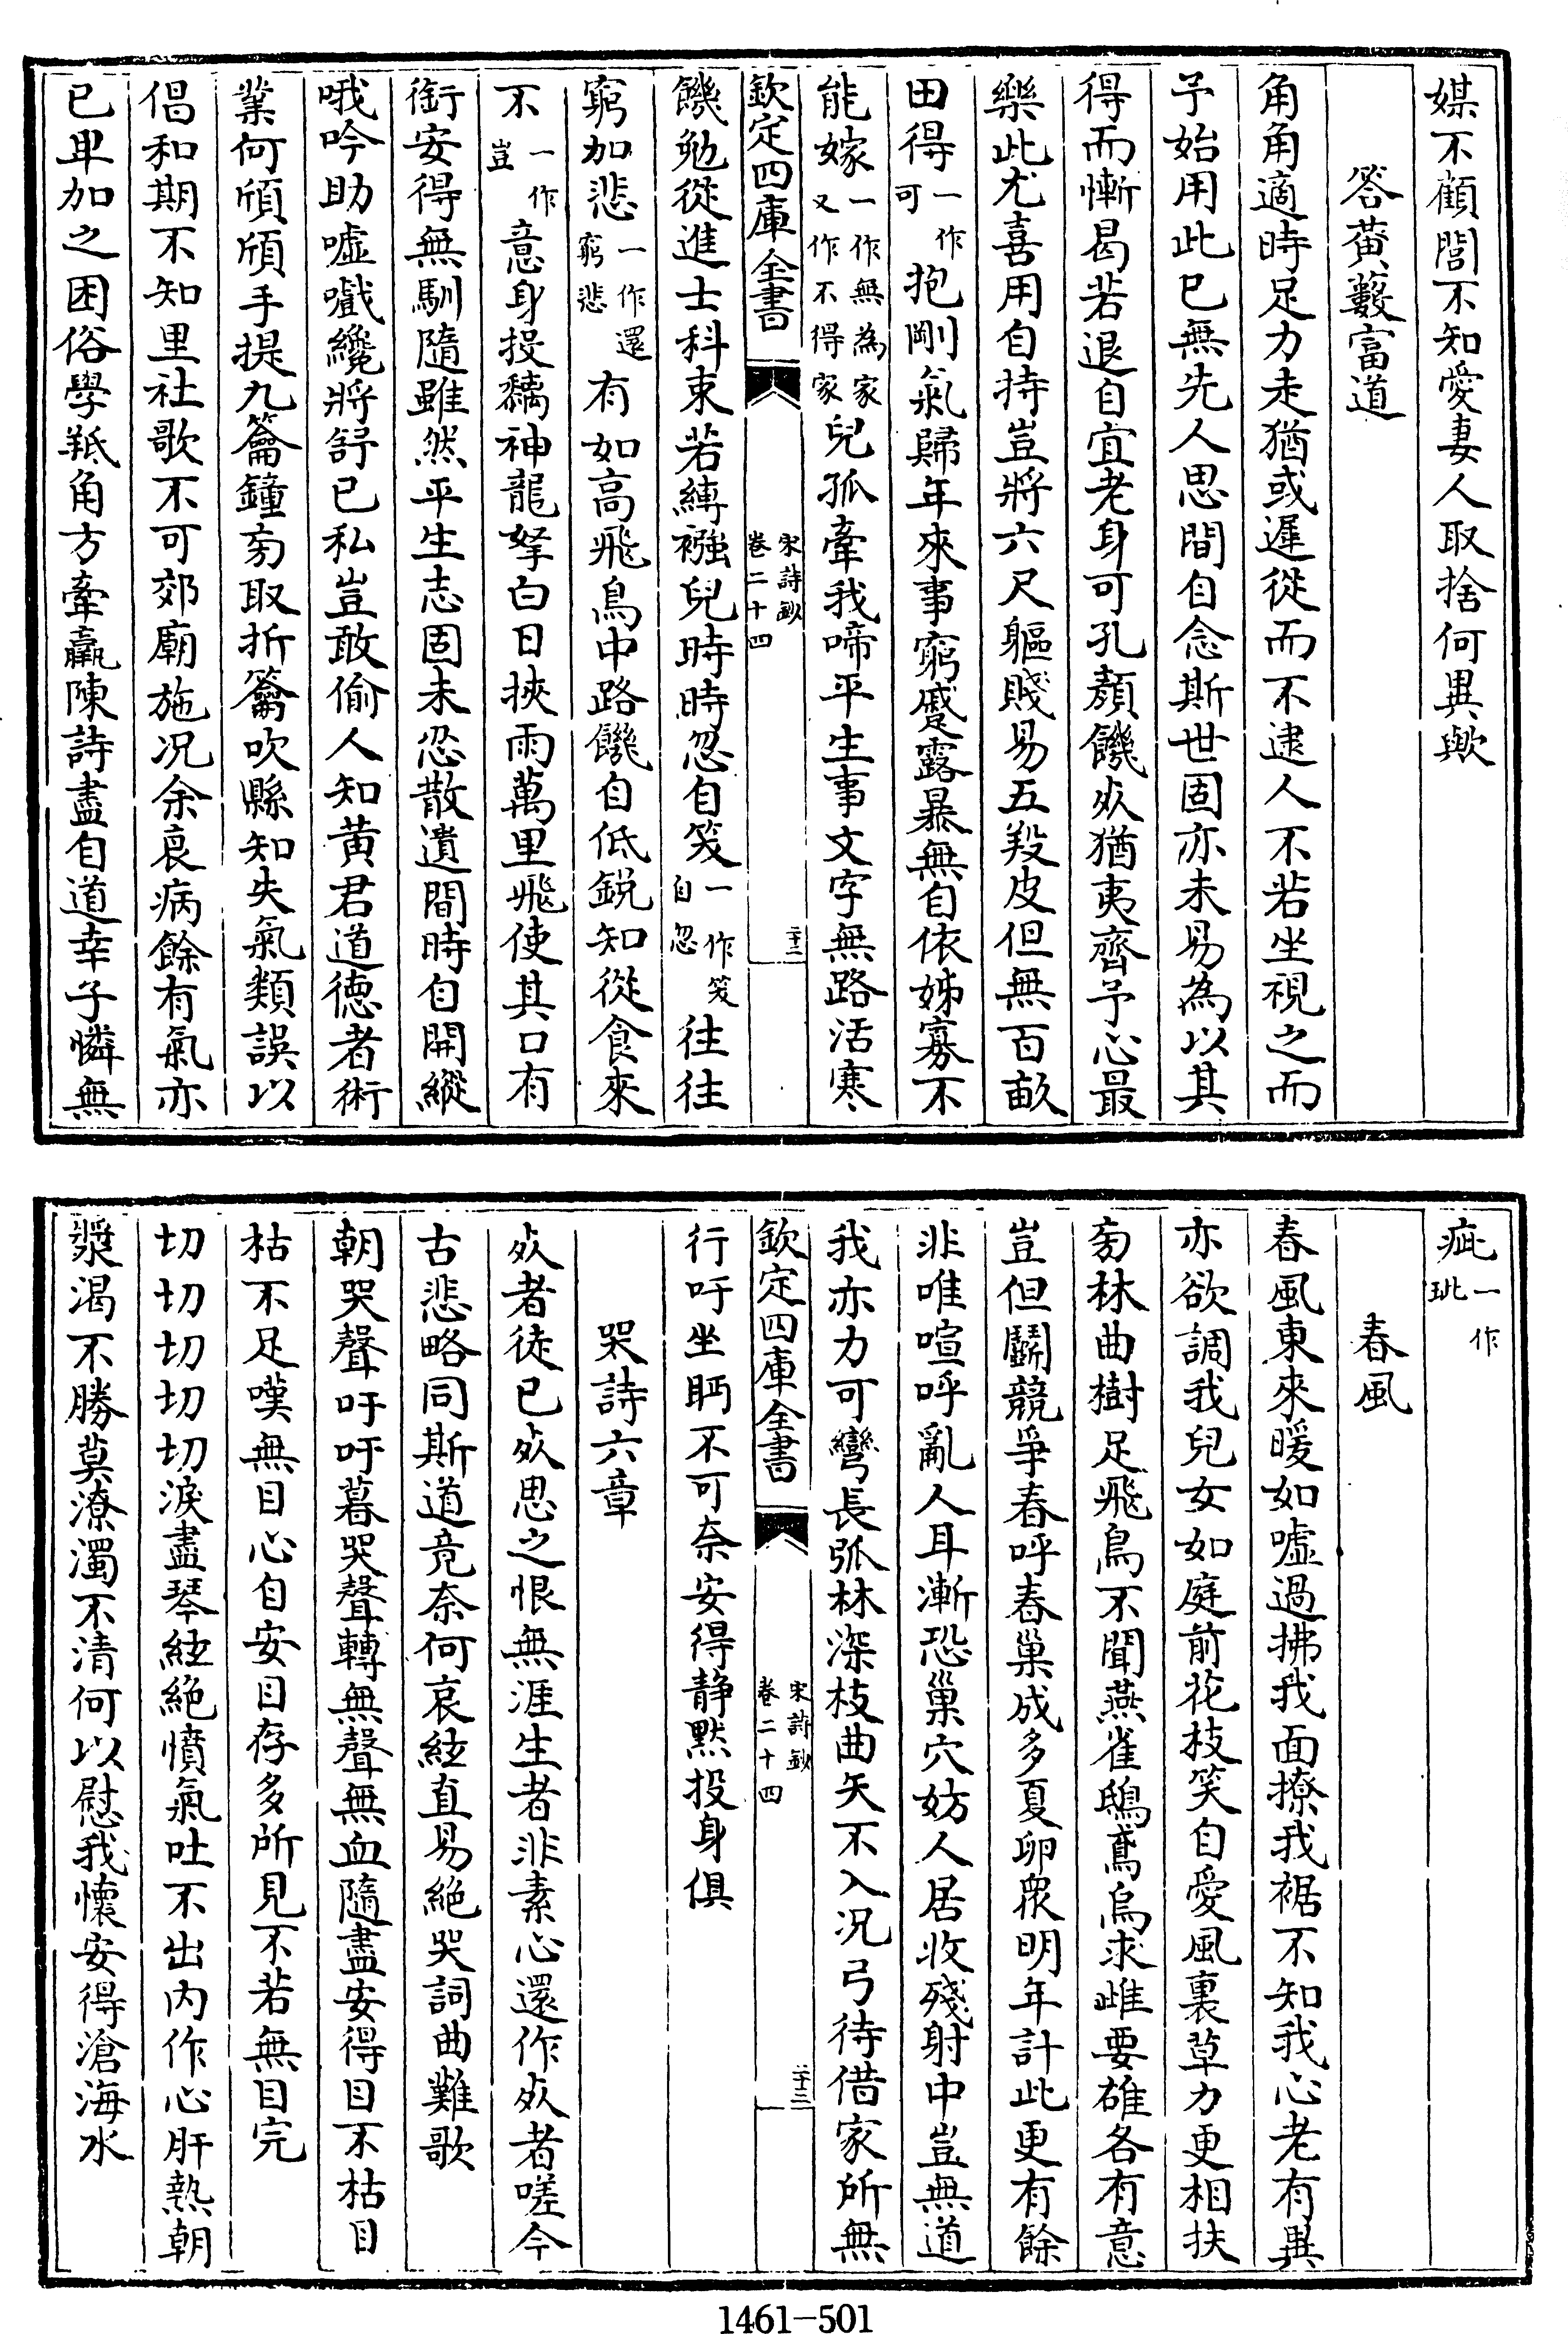 媒不顧閭不知愛妻人取捨何異歟
答黃藪富道
角角適時足力走猶或遲從而不逮人不若坐視之而
予始用此已無先人思間自念斯世固亦未易為以其
得而慚曷若退自宜老身可孔顏饑死猶夷齊予心最
樂此尤喜用自持豈將六尺軀賤易五羖皮但無百畝
田得一作可抱剛氣歸年來事窮蹙露暴無自依姊寡不
能嫁一作無為家又作不得家兒孤牽我啼平生事文字無路活寒
欽定四庫全書
宋詩鈔
卷二十四
二十二
饑勉從進士科束若縛襁兒時時忽自笑一作笑自忽往往
窮加悲一作還窮悲有如高飛鳥中路饑自低鋭知從食來
不一作豈意身投黐神龍拏白日挾雨萬里飛使其口有
銜安得無馴隨雖然平生志固未忍散遺間時自開縱
哦吟助噓嚱纔將舒已私豈敢偷人知黃君道德者術
業何頎頎手提九籥鐘旁取折籥吹縣知失氣類誤以
倡和期不知里社歌不可郊廟施况余哀病餘有氣亦
已卑加之困俗學羝角方牽羸陳詩盡自道幸子憐無
疵一作玼
春風
春風東來暖如噓過拂我面撩我裾不知我心老有異
亦欲調我兒女如庭前花枝笑自愛風裏草力更相扶
旁林曲樹足飛鳥不聞燕雀鴟鳶烏求雌要雄各有意
豈但鬭競爭春呼春巢成多夏卵衆明年計此更有餘
非唯喧呼亂人耳漸恐巢穴妨人居收殘射中豈無道
我亦力可彎長弧林深枝曲矢不入况弓待借家所無
欽定四庫全書
宋詩鈔
卷二十四
二十三
行吁坐眄不可奈安得静默投身俱
哭詩六章
死者徒已死思之恨無涯生者非素心還作死者嗟今
古悲略同斯道竟奈何哀絃直易絕哭詞曲難歌
朝哭聲吁吁暮哭聲轉無聲無血隨盡安得目不枯目
枯不足嘆無目心自安目存多所見不若無目完
切切切切切淚盡琴絃絕憤氣吐不出内作心肝熱朝
漿渴不勝莫潦濁不清何以慰我懷安得滄海水
1461-501